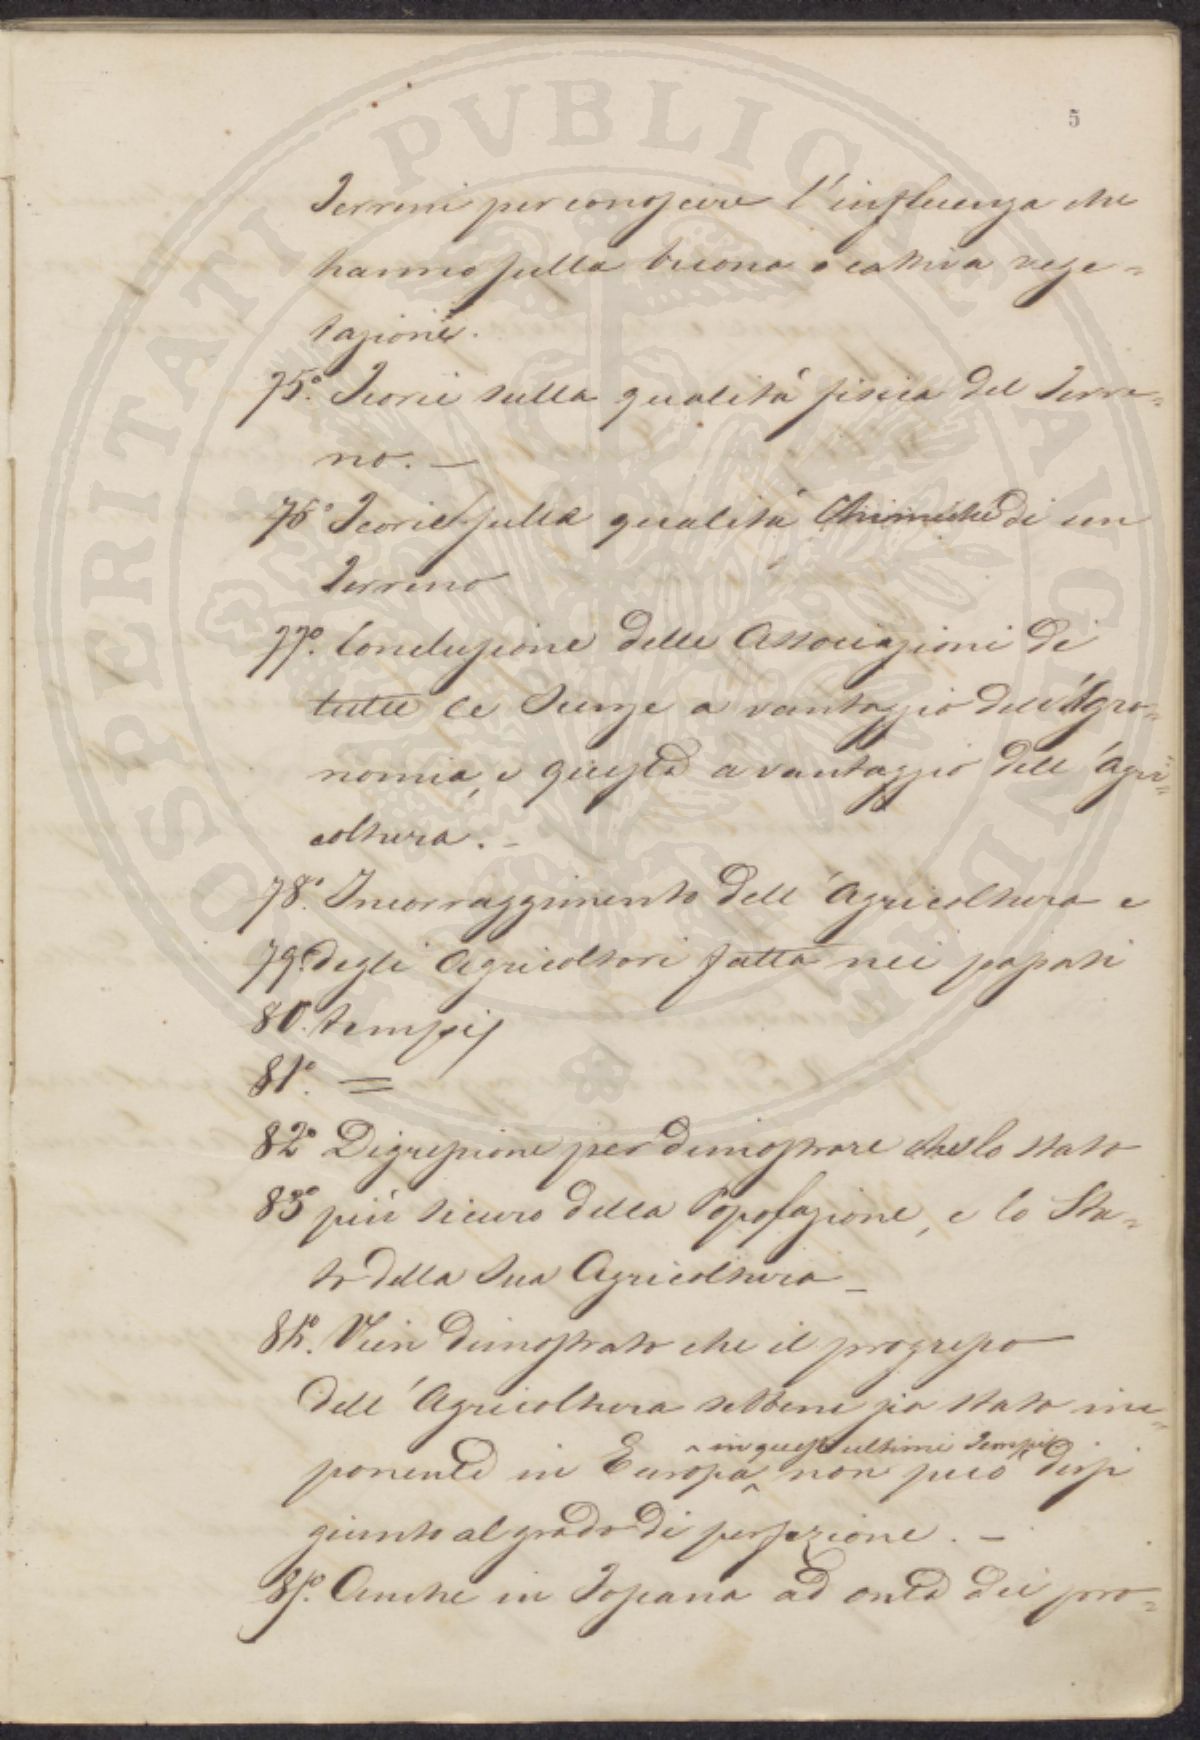 5
Terreni per conoscere l'influenza che
hanno sulla buona o cattiva vege=
tazione.
75.° Teorie sulla qualità fisica del Terre=
no. —
76.° Teorie sulla qualità Chimiche di un
Terreno
77.° Conclusione delle Associazioni di
tutte le Scienze a vantaggio dell'Agro=
nomia, e questa a vantaggio dell'Agri=
coltura. –
78.° Incorraggimento dell'Agricoltura e
79.° degli Agricoltori fatta nei passati
80. tempi
81.° =
82.° Digressione per dimostrare che lo stato
83.° più sicuro della Popolazione, e lo Sta=
to della sua Agricoltura —
84.° Vien dimostrato che il progresso
dell'Agricoltura sebbene sia stato im=
in questi ultimi Tempi
ponente in Europa non può dirsi
giunto al grado di perfezione. —
85.° Anche in Toscana ad onta dei pro=
PROSPERITATI PVBLICAE AVGENDAE